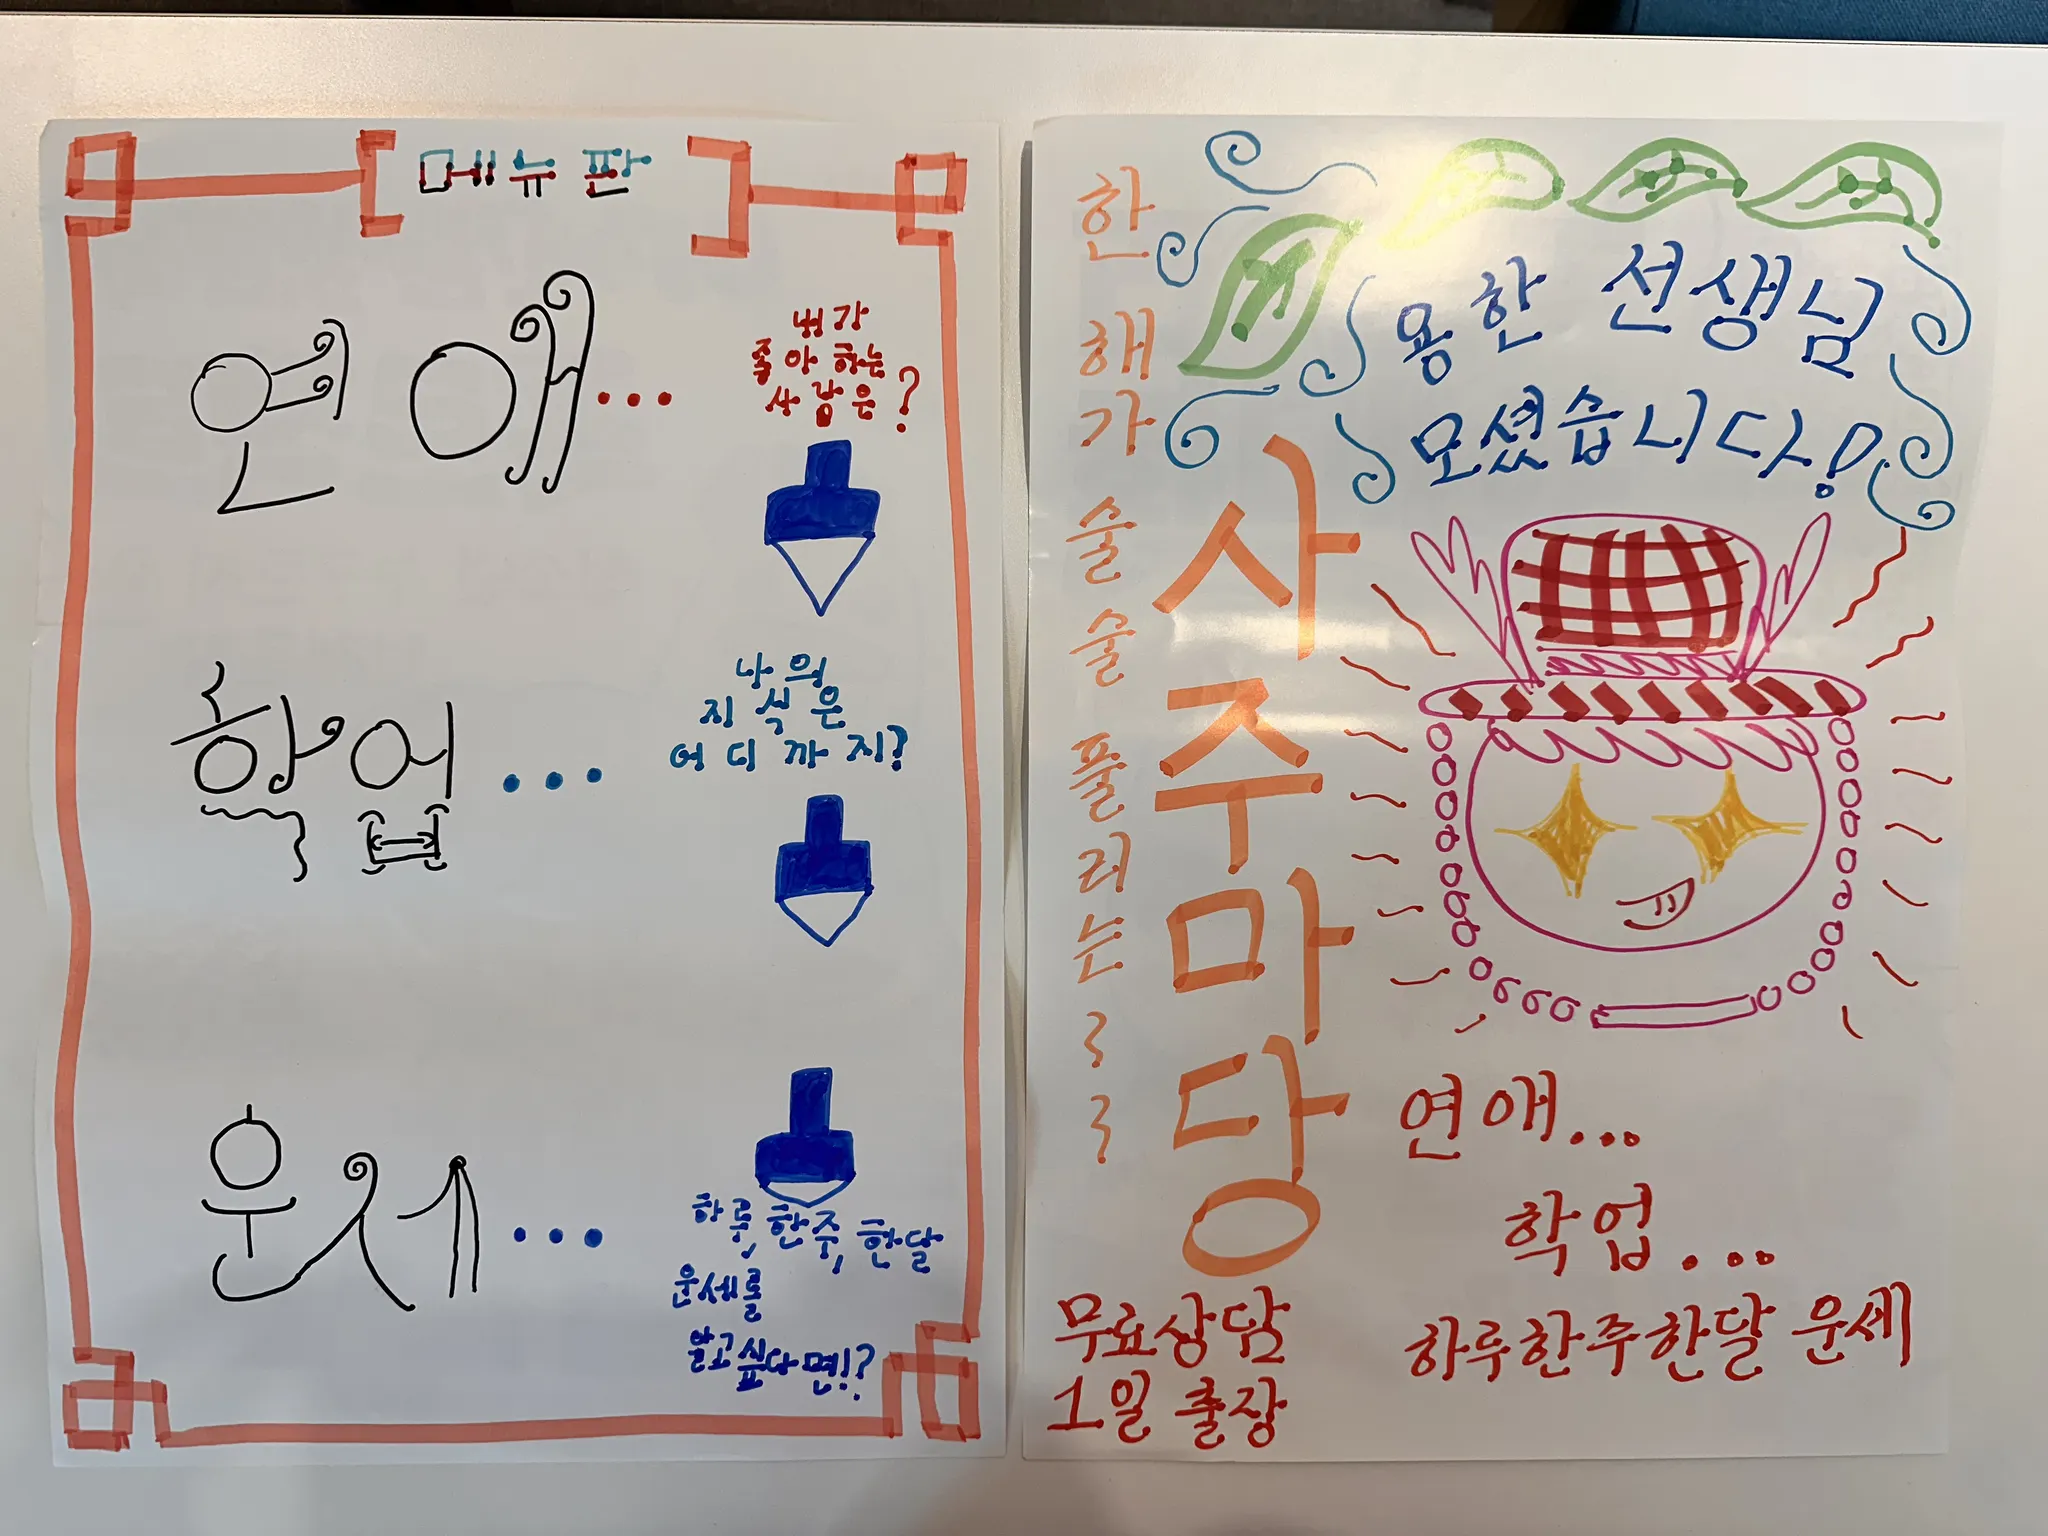 메뉴판
연애...
내가
좋아하는
사람은?
학업...
나의
지식은
어디까지?
운세...
하루, 한주, 한달
운세를
알고싶다면!?
한해가술술풀리는
용한 선생님
모셨습니다!
사주마당
연애...
학업...
하루한주한달 운세
무료상담
1일 출장